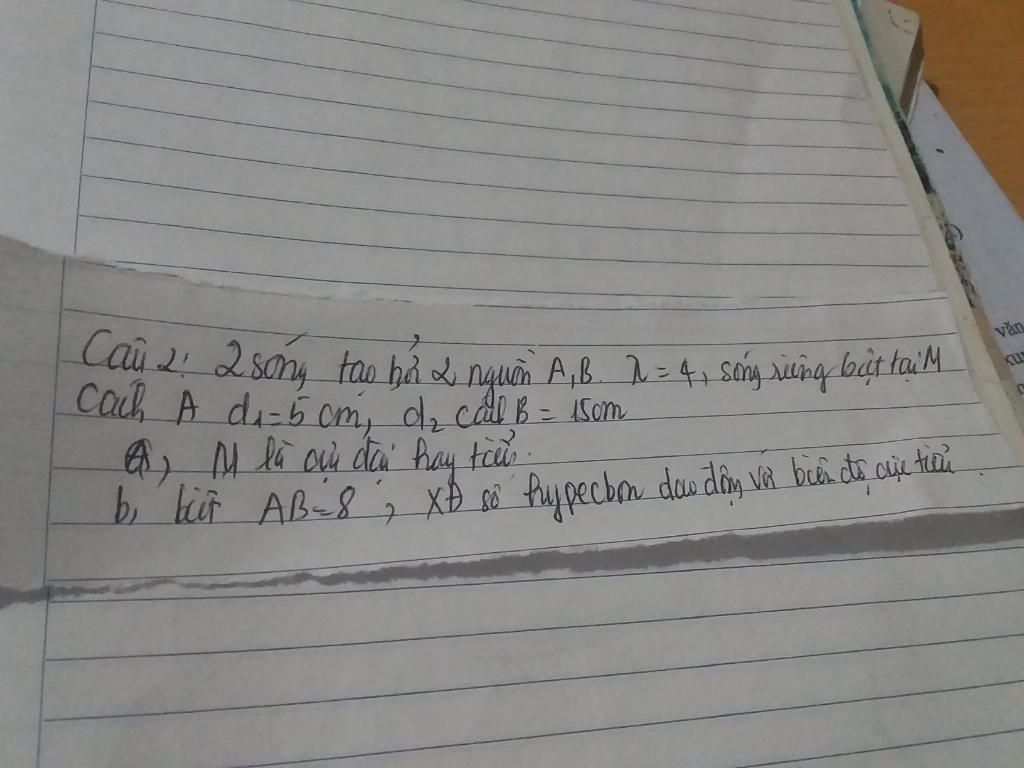 Câu 2: 2 sóng tạo bởi 2 nguồn A, B. λ = 4, sóng riêng biệt tại M
Cách A d₁ = 5 cm, d₂ cách B = 15cm
a, M là cực đại hay tiểu.
b, biết AB = 8, XĐ số hypecbon dao động với biên độ cực tiểu.
văn